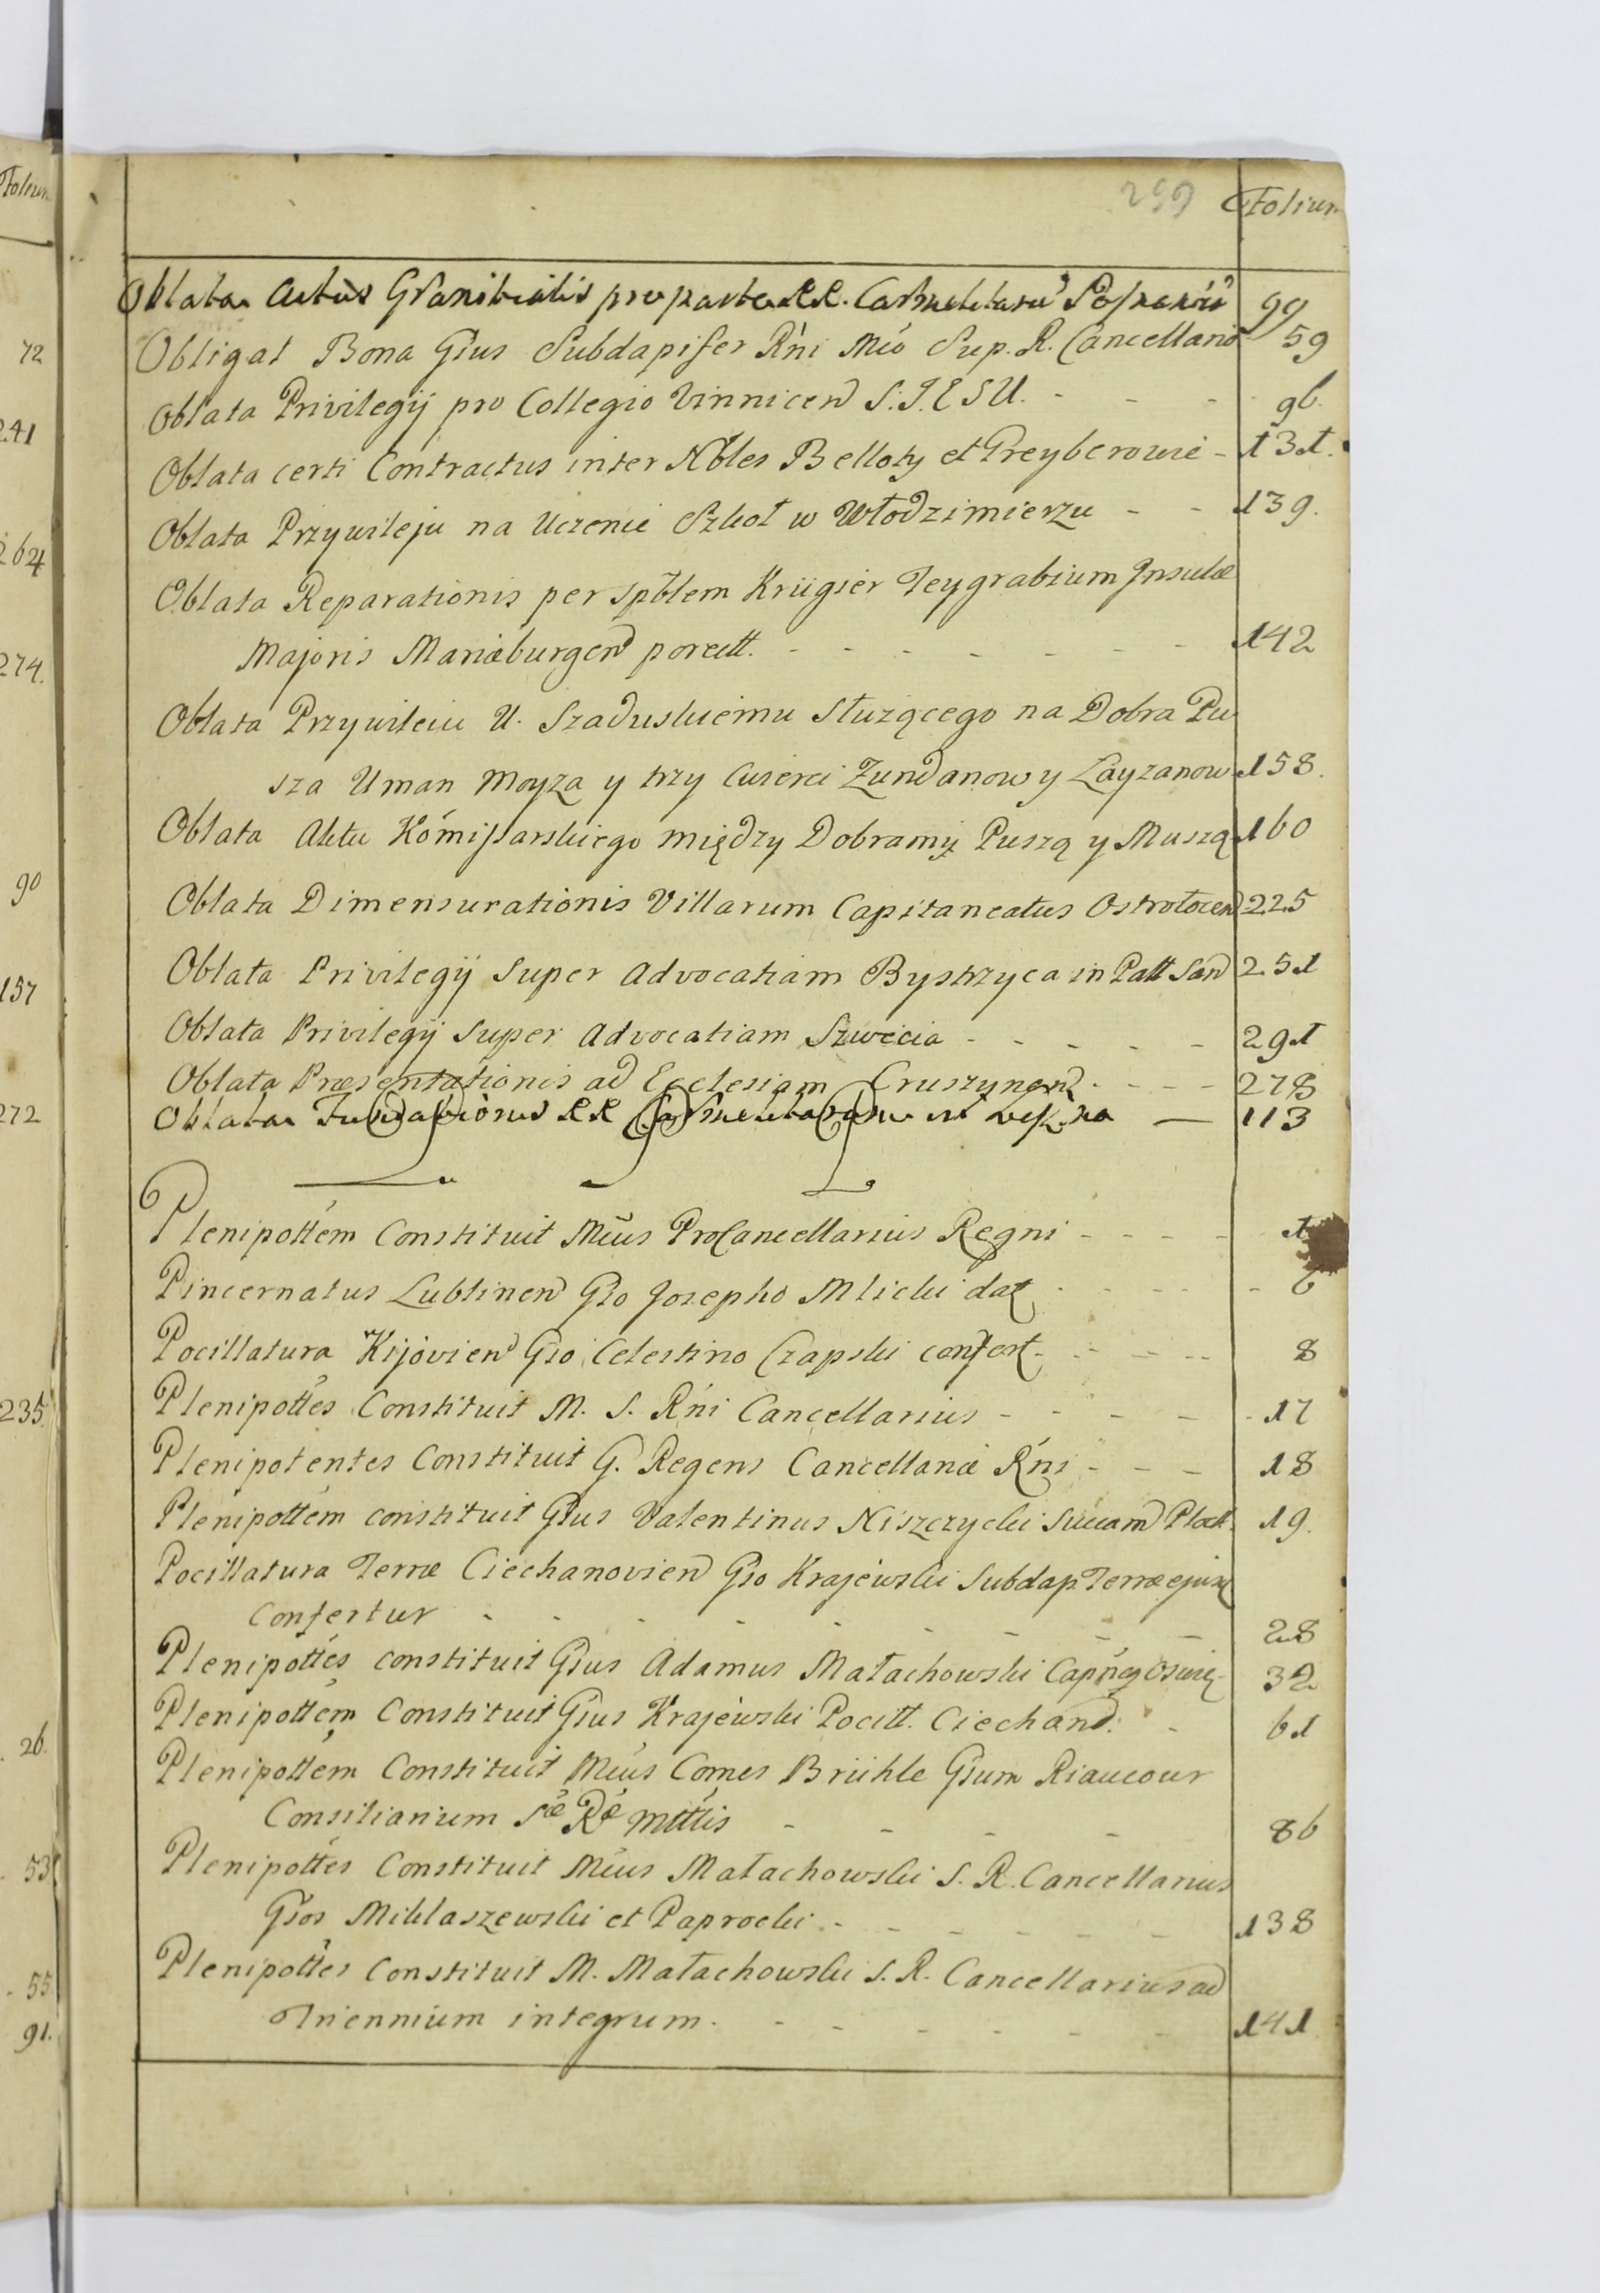 Folium
72
241
264
274.
90
157
272
235
26.
53
55
91.
299 Folium
Oblata Actus Granitialis pro parte RR. Carmelitarũ 99
Obligat Bona Gsus Subdapifer Rńi Mćo Sup. R. Cancellario 59
Oblata Privilegij pro Collegio Vinnicen S: I. E S U. - - - 96.
Oblata certi Contractus inter Nobles Belloty et Preyberowie - 131.
Oblata Przywileju na Uczenie Szkoł w Włodzimierzu - - 139.
Oblata Reparationis per Spblem Krügier Teygrabium Insulæ
Majoris Mariæburgen porcett. - - - - - - - 142
Oblata Przywileiu U. Szaduskiemu Służącego na Dobra Pu
sza Uman Moyza y trzy Cwierci Zundanow y Layzanow 158.
Oblata Aktu Kómissarskiego między Dobramy Puszą y Muszą 160
Oblata Dimensurationis Villarum Capitaneatus Ostrołecen 225
Oblata Privilegij super Advocatiam Bystrzyca in Patt San 251
Oblata Privilegij super Advocatiam Szwecia - - - - - 291
Oblata Præsentationis ad Ecclesiam Cruszynen - - - - 278
Oblata Fundationis RR Carmelitarum — 113
Plenipottém Constituit Mćus ProCancellarius Regni - - - - 1
Pincernatus Lublinen Gso Josepho Mlicki dat - - - - - 6
Pocillatura Kijovien Gso Celestino Czapski confert - - - - 8
Plenipottés Constituit M. S. Rńi Cancellarius - - - - - 17
Plenipotentes Constituit G. Regens Cancellariæ Rńi - - - 18
Plenipottém constituit Gsus Valentinus Niszczycki Succam Plock. 19.
Pocillatura Terræ Ciechanovien Gso Krajewski Subdap Terræ ejusd
Confertur - - - - - - - - 28
Plenipottés constituit Gsus Adamus Małachowski Capńeg Oswię - 32
Plenipottém Constituit Gsus Krajewski Pocitt. Ciechan. - 61
Plenipottém Constituit Mćus Comes Brühle Gsum Riaucour
Consiliarium Sæ Ræ Mttis - - - - 86
Plenipottés Constituit Mćus Małachowski S. R. Cancellarius
Gsos Miklaszewski et Paprocki - - - - - - 138
Plenipottés Constituit M. Małachowski S. R. Cancellarius ad
Triennium integrum. - - - - - - 141